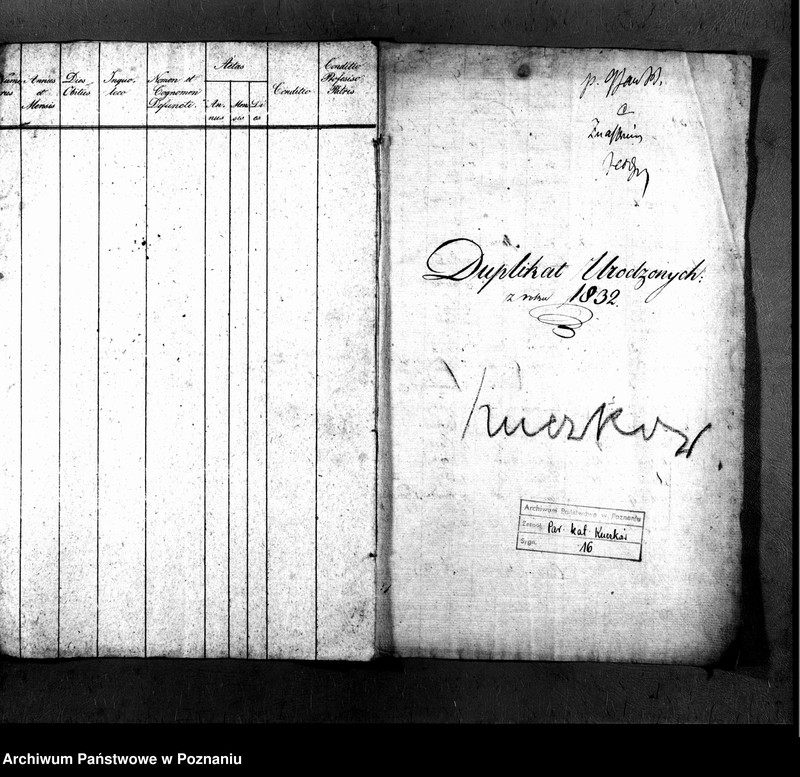 Nume
rus
Annus
et
Mensis
Dies
Obitus
In quo
loco
Nomen et
Cognomen
Defuncti
Aetas
An-
nus
Men
sis
Di
es
Conditio
Conditio
Professio
Patris
Duplikat Urodzonych.
z roku 1832.
Kuczków
Archiwum Państwowe w Poznaniu
Zespół Par. kat. Kuczków
Sygn. 16
Archiwum Państwowe w Poznaniu